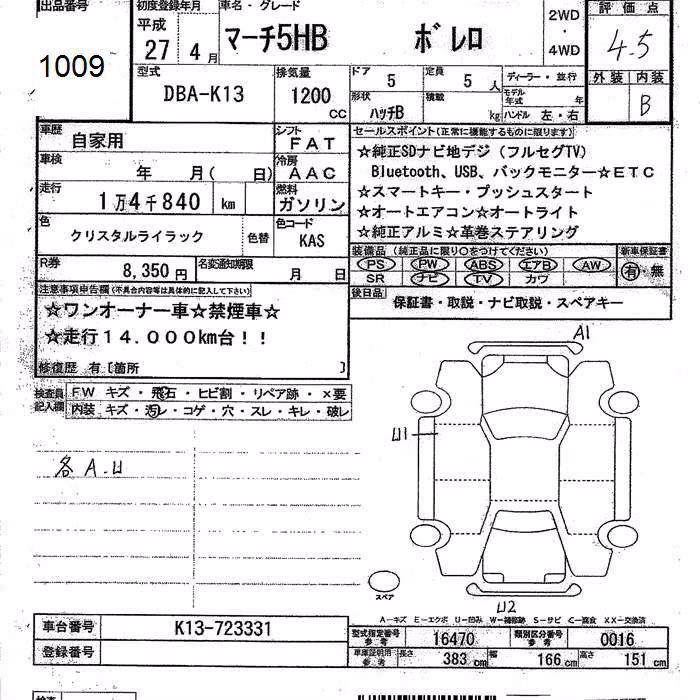 出品番号
1009
初度登録年月
平成
27 4 月
車名・グレード
マーチ5HB ボレロ
2WD
・
4WD
評価点
4.5
外装 内装
B
型式
DBA-K13
排気量
1200
CC
ドア
5
定員
5 人
形状
ハッチB
積載
kg
ディーラー・並行
モデル年式 年
ハンドル 左・右
車歴
自家用
シフト
FAT
車検
年 月( 日)
冷房
AAC
走行
1万4千840 km
燃料
ガソリン
色
クリスタルライラック
色替
色コード
KAS
R券
8,350 円
名変通知期限
月 日
セールスポイント(正常に機能するものに限ります)
☆純正SDナビ地デジ(フルセグTV)
Bluetooth、USB、バックモニター☆ETC
☆スマートキー・プッシュスタート
☆オートエアコン☆オートライト
☆純正アルミ☆革巻ステアリング
装備品(純正品に限り○をつけてください)
PS PW ABS エアB AW
SR ナビ TV カワ
新車保証書
有・無
後日品
保証書・取説・ナビ取説・スペアキー
注意事項申告欄(不具合内容等は具体的に記入して下さい)
☆ワンオーナー車☆禁煙車☆
☆走行14.000km台!!
修復歴 有[箇所 ]
検査員記入欄
FW キズ・飛石・ヒビ割・リペア跡・×要
内装 キズ・汚レ・コゲ・穴・スレ・キレ・破レ
各A.U
A1
U1
U2
スペア
A-キズ E-エクボ U-凹み W-補修跡 S-サビ C-腐食 XX-交換済
車台番号
K13-723331
登録番号
型式指定番号
参考
16470
類別区分番号
参考
0016
車庫証明用
参考
長さ 383 cm
幅 166 cm
高さ 151 cm